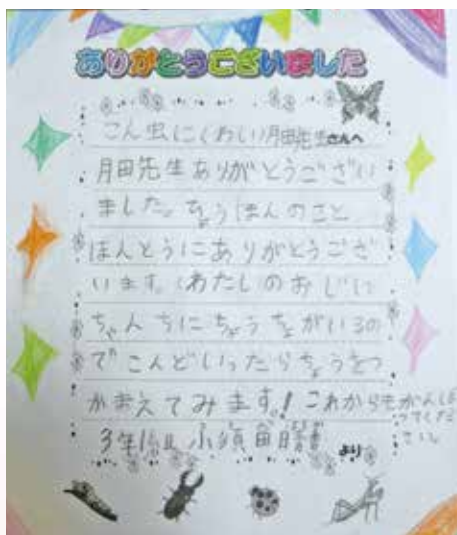 ありがとうございました
こん虫にくわしい月田先生さんへ
月田先生ありがとうござい
ました。ちょうほんのこと
ほんとうにありがとうござ
います。わたしのおじい
ちゃんちにちょうちょがいるの
でこんどいったらちょうをつ
かまえてみます。! これからもがんば
ってくださ
い。
3年1組 小須
より